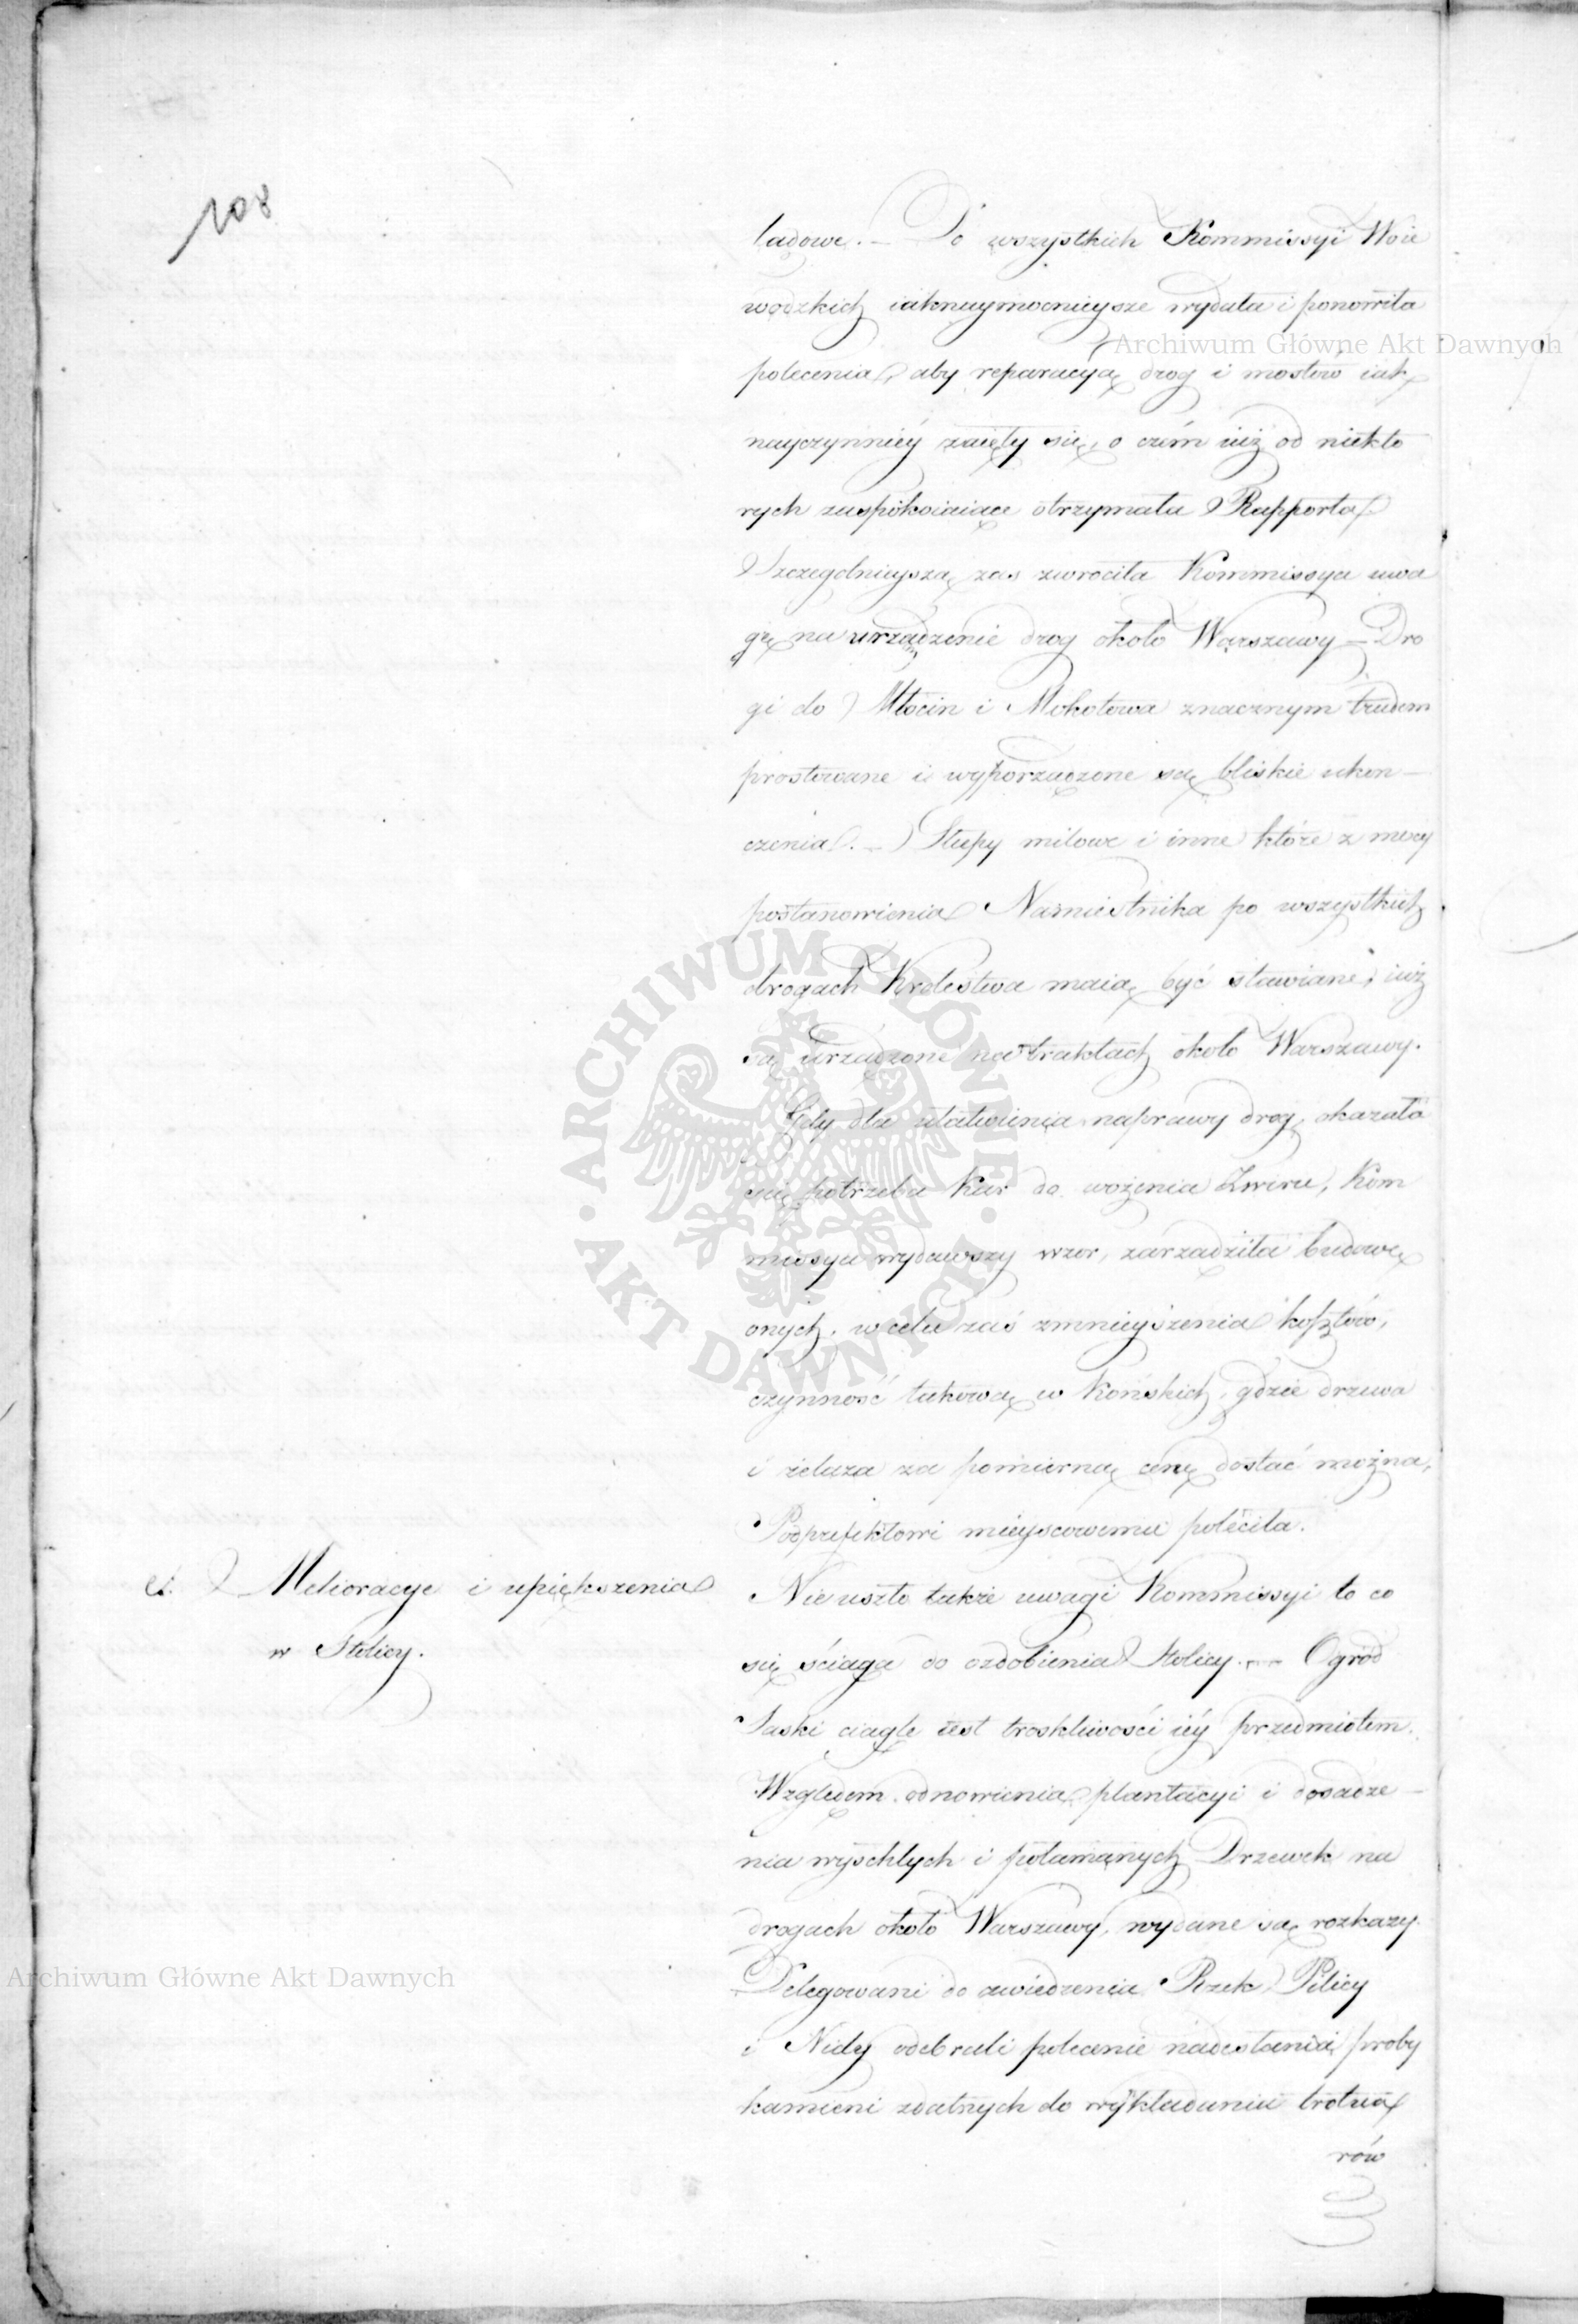 108
lądowe. – Do wszystkich Kommissyi Woie
wodzkich iaknaymocnieysze wydała i ponowiła
polecenia, aby reparacyą drog i mostów iak
nayczynniéy zaięły się, o czém iuż od niekto
rych zaspokoiaiące otrzymała Rapporta
Szczegolnieyszą zas zwrociła Kommissya uwa
gę na urządzenie drog około Warszawy – Dro
gi do Młocin i Mokotowa znacznym trudem
prostowane i wyporządzone są bliskie ukon –
czenia. – Słupy milowe i inne które z mocy
postanowienia Namiestnika po wszystkich
drogach Krolestwa maią być stawiane, iuż
są urządzone na traktach około Warszawy.
Gdy dla ułatwienia naprawy drog, okazała
się potrzeba Kar do wożenia Żwiru, Kom
missya wydawszy wzor, zarządziła budowę
onych, w celu zaś zmnieyszenia kosztów,
czynność takową w Końskich, gdzie drzewa
i żelaza za pomierną cenę dostać można,
Podprefektowi mieyscowemu poleciła.
e. Melioracye i upiększenia
w Stolicy.
Nie uszło także uwagi Kommissyi to co
się ściąga do ozdobienia Stolicy. – Ogród
Saski ciągle iest troskliwości iéy przedmiotem.
Względem odnowienia plantacyi i dosadze –
nia wyschłych i połamanych Drzewek na
drogach około Warszawy, wydane są rozkazy.
Delegowani do zwiedzenia Rzek Pilicy
i Nidy odebrali polecenie nadesłania proby
kamieni zdatnych do wykładania trotua
rów
Archiwum Główne Akt Dawnych
ARCHIWUM GŁÓWNE · AKT DAWNYCH ·
Archiwum Główne Akt Dawnych